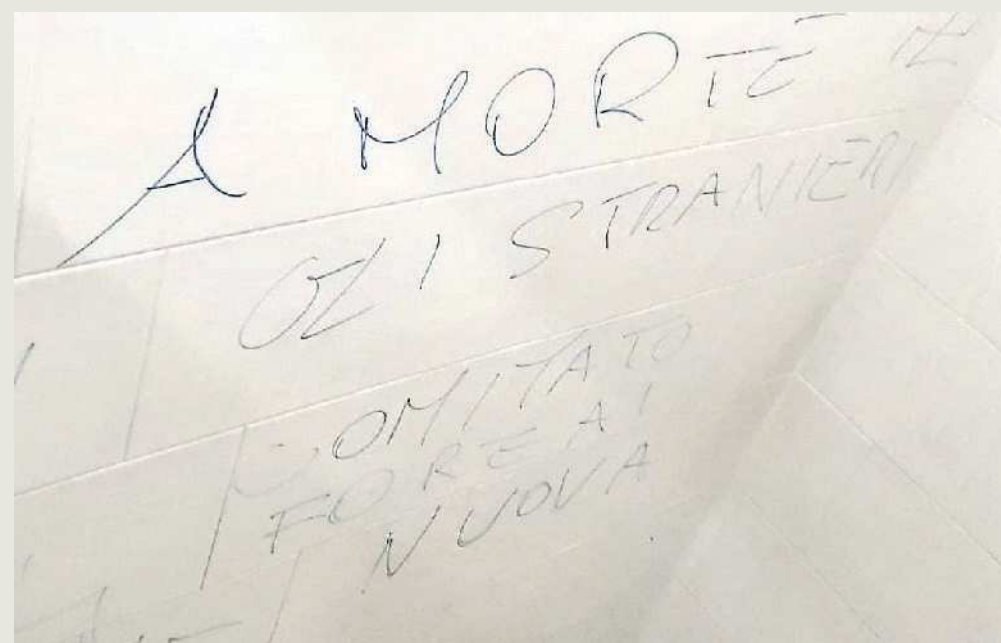 A MORTE
GLI STRANIERI
COMITATO
FORZA
NUOVA